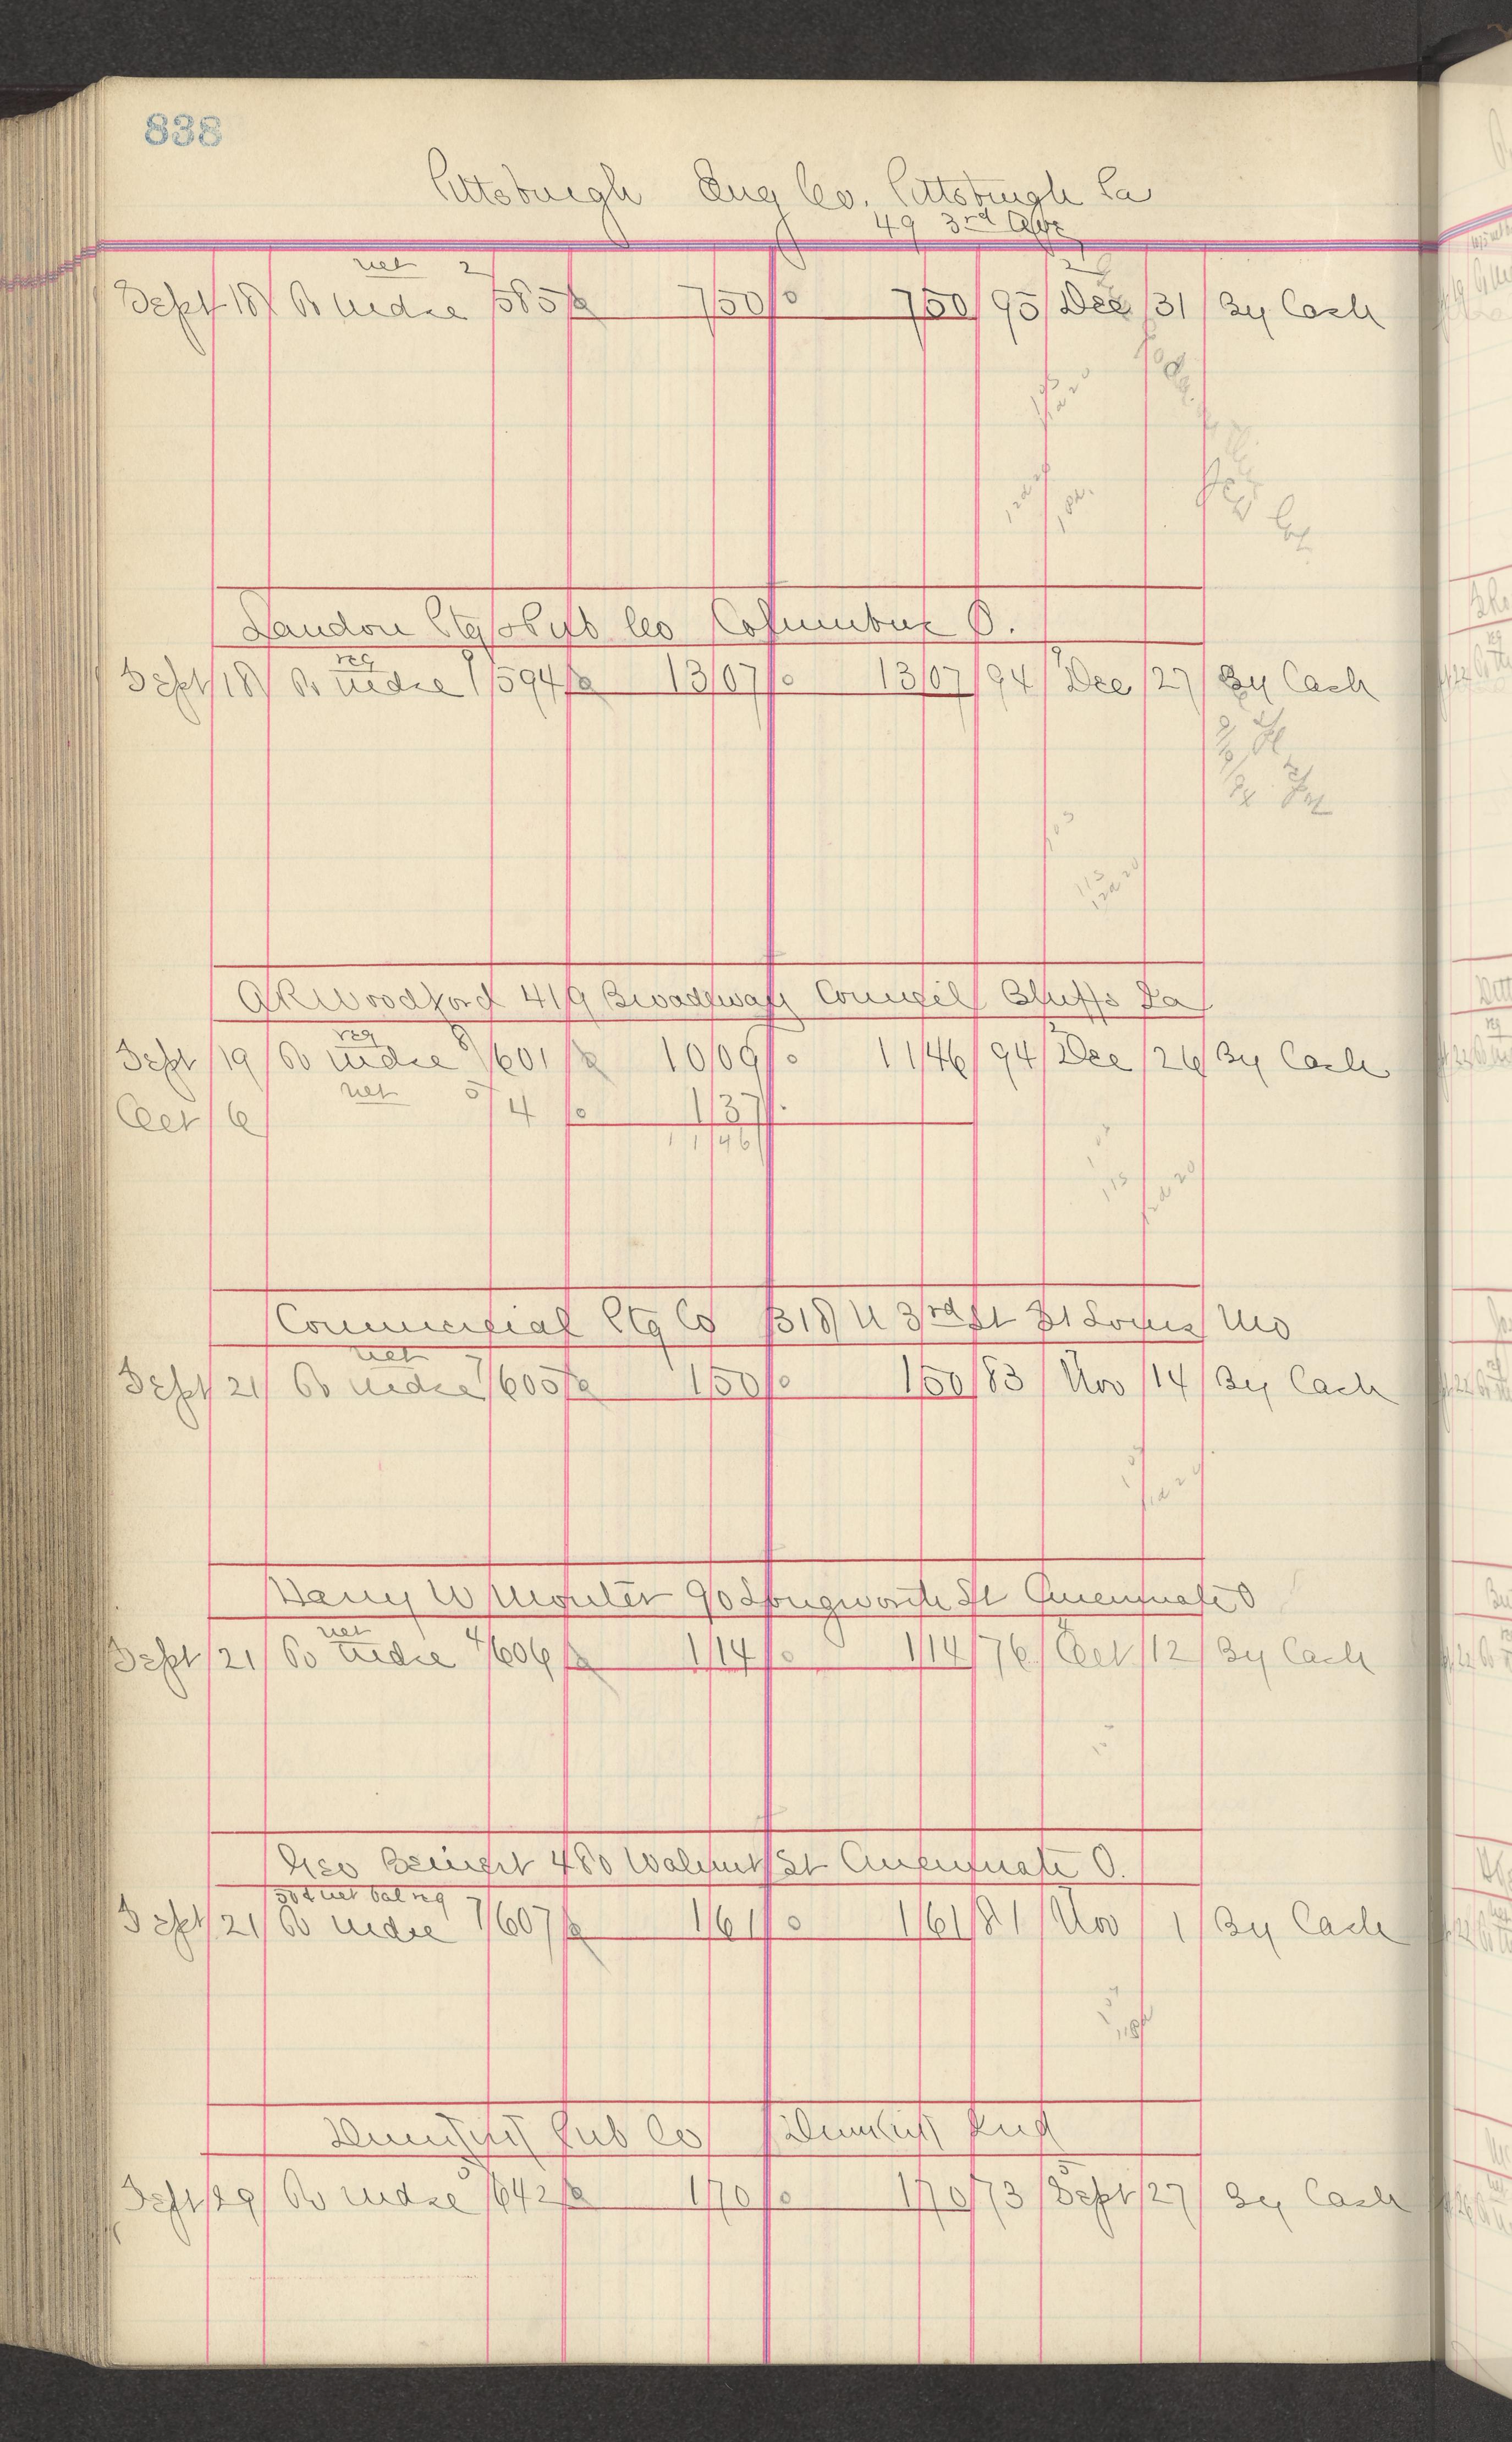 838
Pittsburgh Eng Co. Pittsburgh Pa
49 3rd Ave
net 2
Sept 18 To mdse 585 7 50 7 50 95 Dec 31 By Cash
Landon Ptg & Pub Co Columbus O.
reg
Sept 18 To mdse 594 13 07 13 07 94 Dec 27 By Cash
A R Woodford 419 Broadway Council Bluffs Ia
reg 8
Sept 19 To mdse 601 10 09 11 46 94 Dec 26 By Cash
net 5
Oct 6 4 1 37
11 46
Commercial Ptg Co 318 N 3rd St St Louis Mo
net
Sept 21 To mdse 7 605 1 50 1 50 83 Nov 14 By Cash
Harry W 90 Longworth St Cincinnati O
net
Sept 21 To mdse 4 606 1 14 1 14 76 Oct 12 By Cash
Geo 480 Walnut St Cincinnati O.
net bal reg
Sept 21 To mdse 7 607 1 61 1 61 81 Nov 1 By Cash
Pub Co Ind
Sept 29 To mdse 5 642 1 70 1 70 73 Sept 27 By Cash